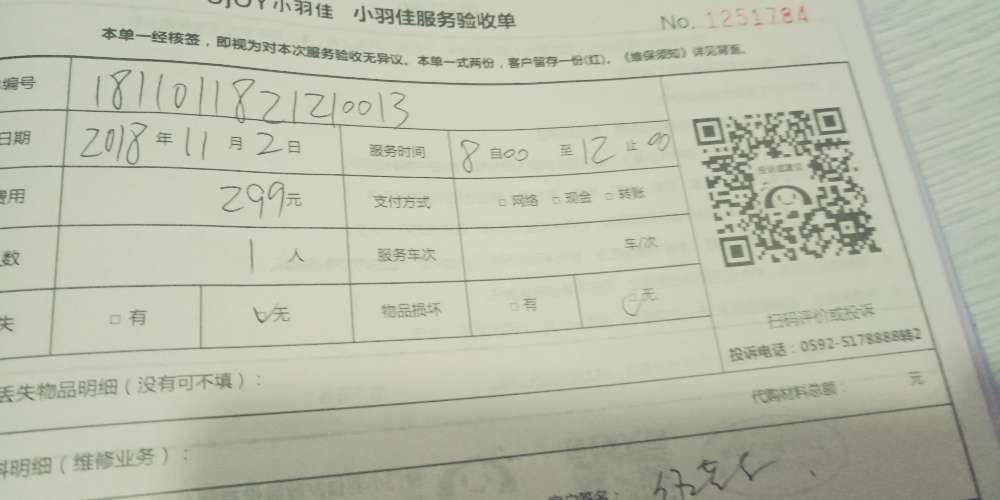 小羽佳 小羽佳服务验收单
No. 1251784
本单一经核签，即视为对本次服务验收无异议。本单一式两份，客户留存一份(红)。《维保须知》详见背面。
编号 1811011821210013
日期 2018年11月2日 服务时间 8自00至12止00
费用 299元 支付方式 □网络 □现金 □转账
数 1人 服务车次 车/次
失 □有 □无 物品损坏 □有 □无
投诉或建议
扫码评价或投诉
投诉电话：0592-5178888转2
丢失物品明细（没有可不填）：
代购材料总额： 元
料明细（维修业务）：
客户签名：